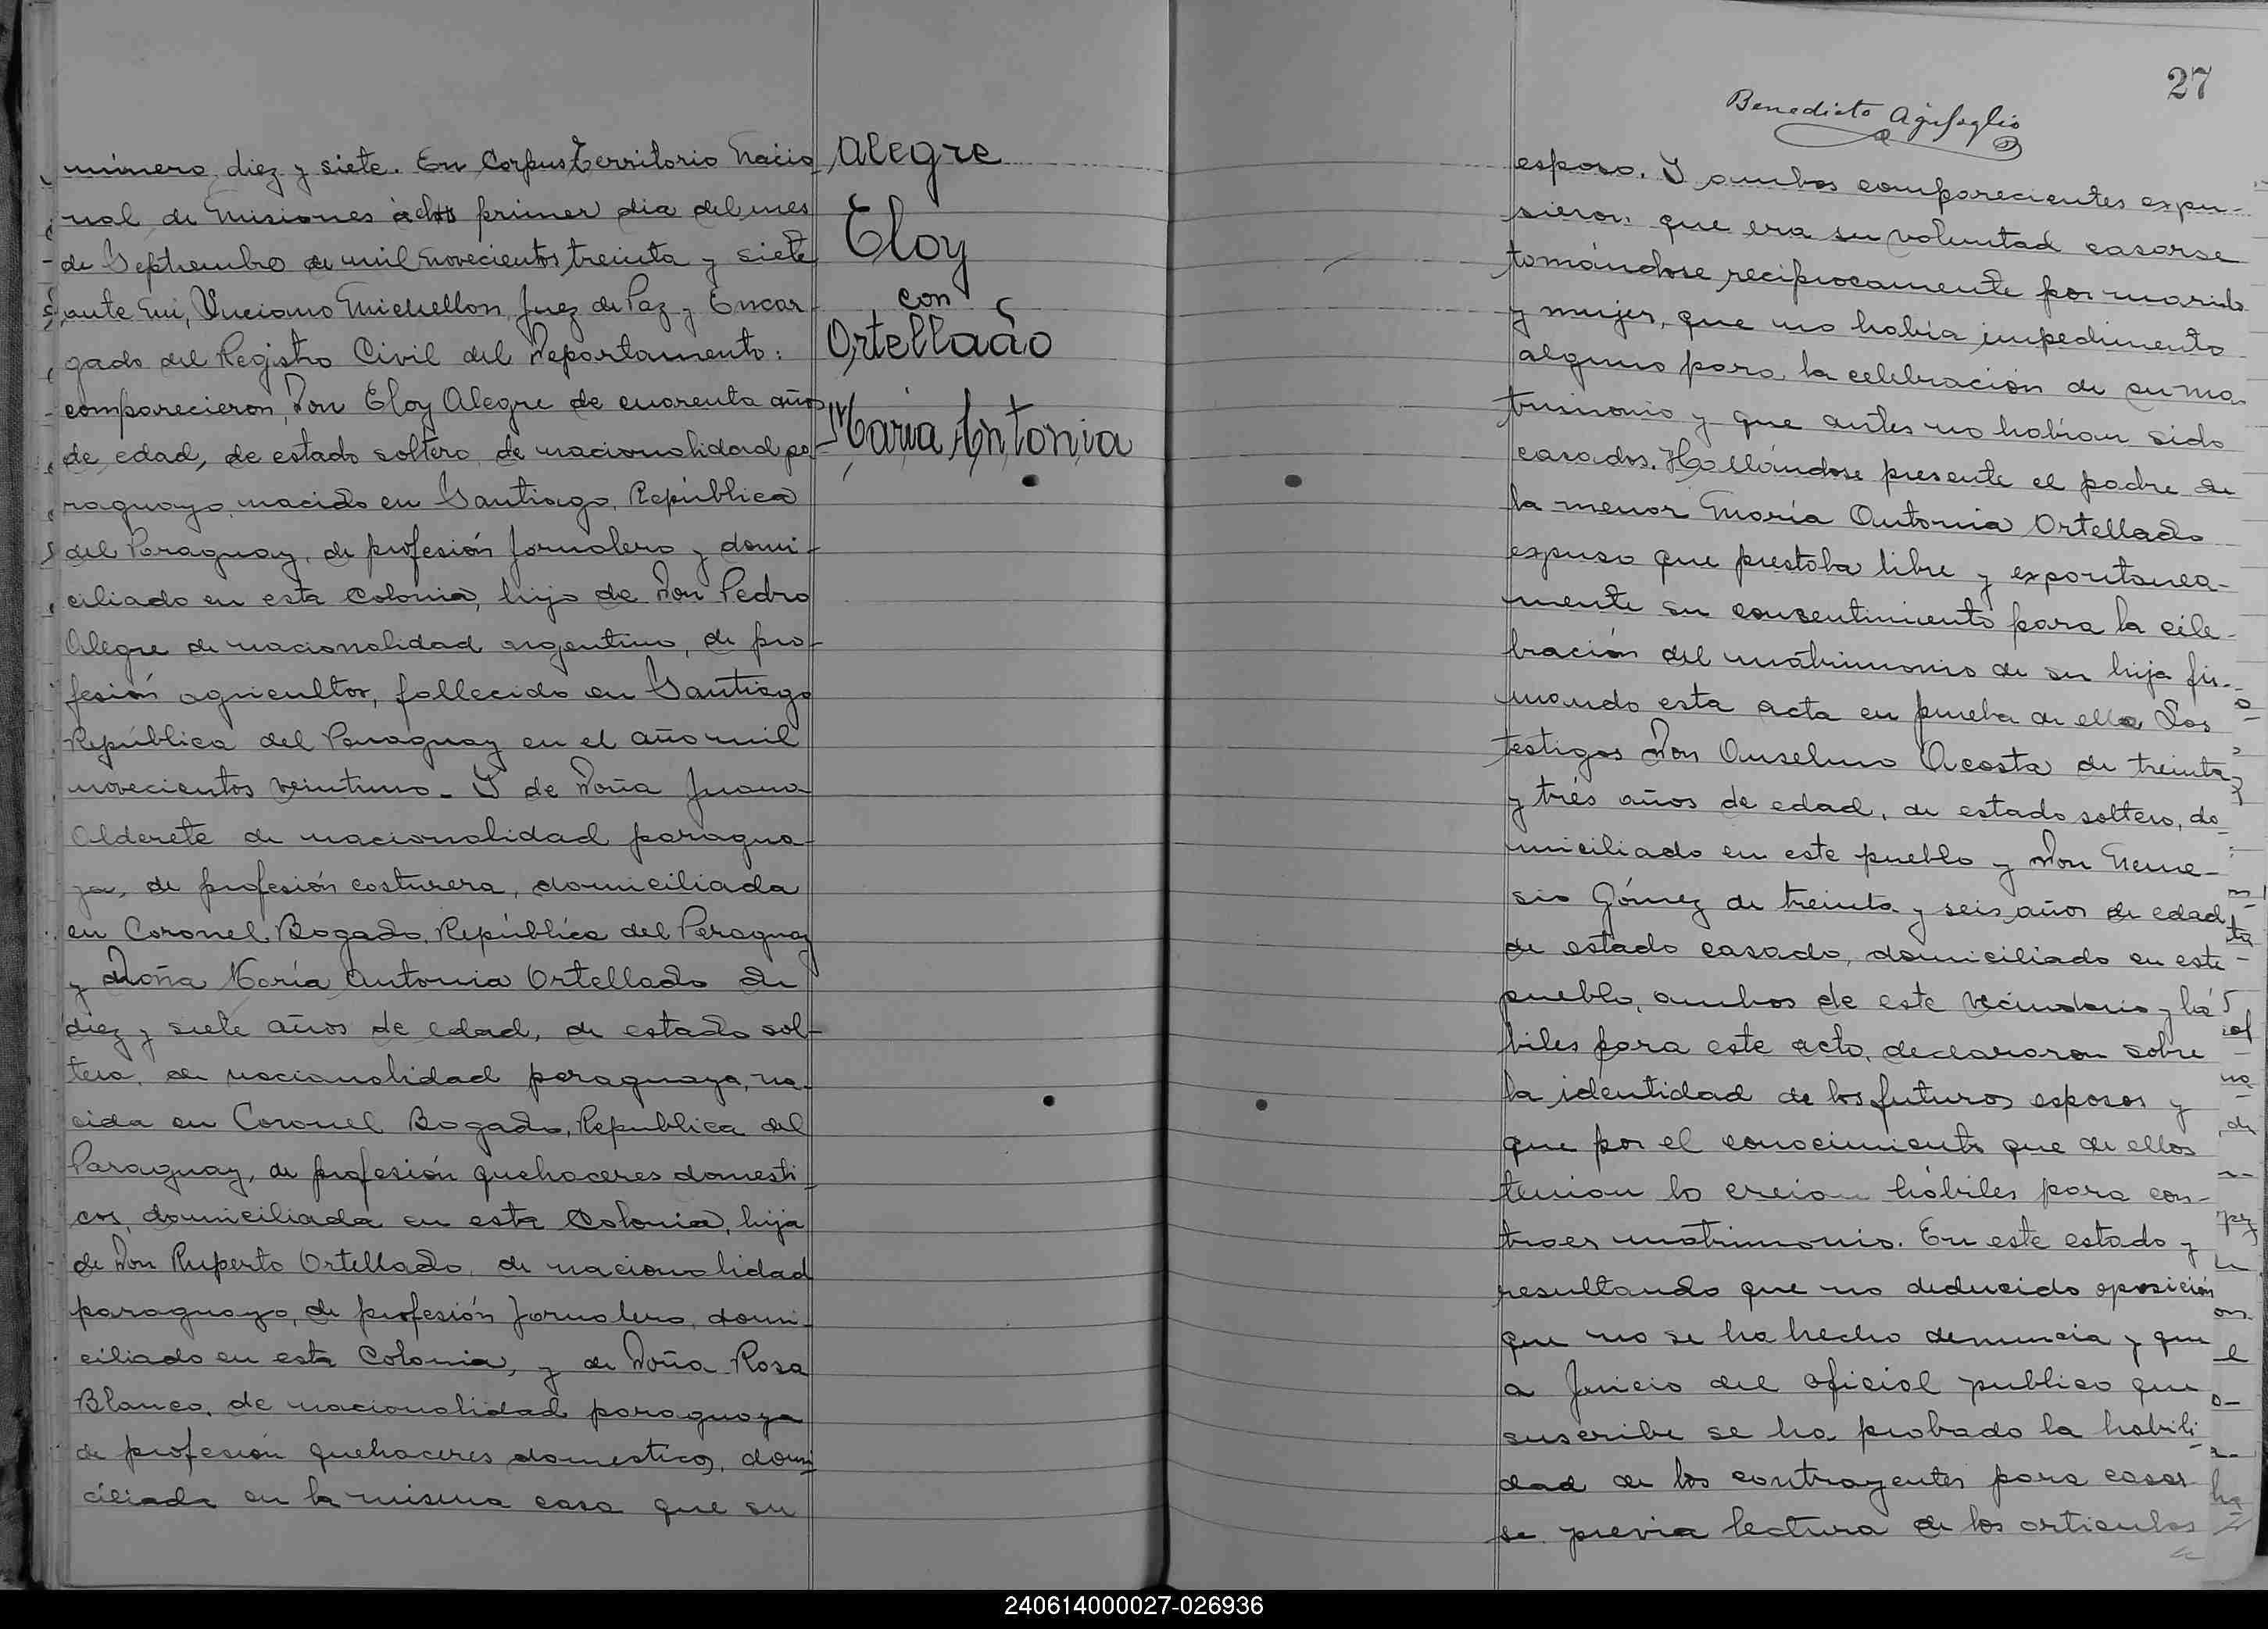 número diez y siete. En Corpus Territorio Nacio
nal de Misiones à los primer dia del mes
de Septiembre de mil novecientos treinta y siete
ante mi, Luciano Michellon Juez de Paz y Encar
gado del Registro Civil del Departamento:
comparecieron, Don Eloy Alegre de cuarenta años
de edad, de estado soltero de nacionalidad pa
raguayo nacido en Santiago, República
del Paraguay, de profesión jornalero y domi-
ciliado en esta Colonia, hijo de Don Pedro
Alegre de nacionalidad argentino, de pro-
fesión agricultor, fallecido en Santiago
República del Paraguay en el año mil
novecientos veintiuno. Y de Doña Juana
Alderete de nacionalidad paragua-
ya, de profesión costurera, domiciliada
en Coronel Bogado, República del Paraguay
y Doña María Antonia Ortellado de
diez y siete años de edad, de estado sol-
tera, de nacionalidad paraguaya, na-
cida en Coronel Bogado, Republica del
Paraguay, de profesión quehaceres domesti
cos, domiciliada en esta Colonia, hija
de Don Ruperto Ortellado, de nacionalidad
paraguayo, de profesión jornalero, domi-
ciliado en esta Colonia, y de Doña Rosa
Blanco, de nacionalidad paraguaya
de profesión quehaceres domestico, domi
ciliada en la misma casa que su
Alegre
Eloy
con
Ortellado
María Antonia
27
Benedicto
esposo. Y ambos comparecientes expu-
sieron: que era su voluntad casarse
tomándose reciprocamente por marido
y mujer, que no había impedimento
alguno para la celebración de su ma
trimonio y que antes no habían sido
casados. Hallándose presente el padre de
la menor María Antonia Ortellado
expuso que prestaba libre y expontanea-
mente su consentimiento para la cele-
bración del mátrimonio de su hija fir-
mando esta acta en prueba de ello. Los
testigos Don Anselmo Acosta de treinta
y trés años de edad, de estado soltero, do
miciliado en este pueblo y Don Neme-
sio Gómez de treinta y seis años de edad
de estado casado, domiciliado en este
pueblo, ambos de este vecindario y há
biles para este acto, declararon sobre
la identidad de los futuros esposos y
que por el conocimiento que de ellos
tenian lo creian hábiles para con-
traer matrimonio. En este estado y
resultando que no deducido oposición
que no se ha hecho denuncia y que
a Juicio del oficial publico que
suscribe se ha probado la habili
dad de los contrayentes para casar
se previa lectura de los articulos
240614000027-026936